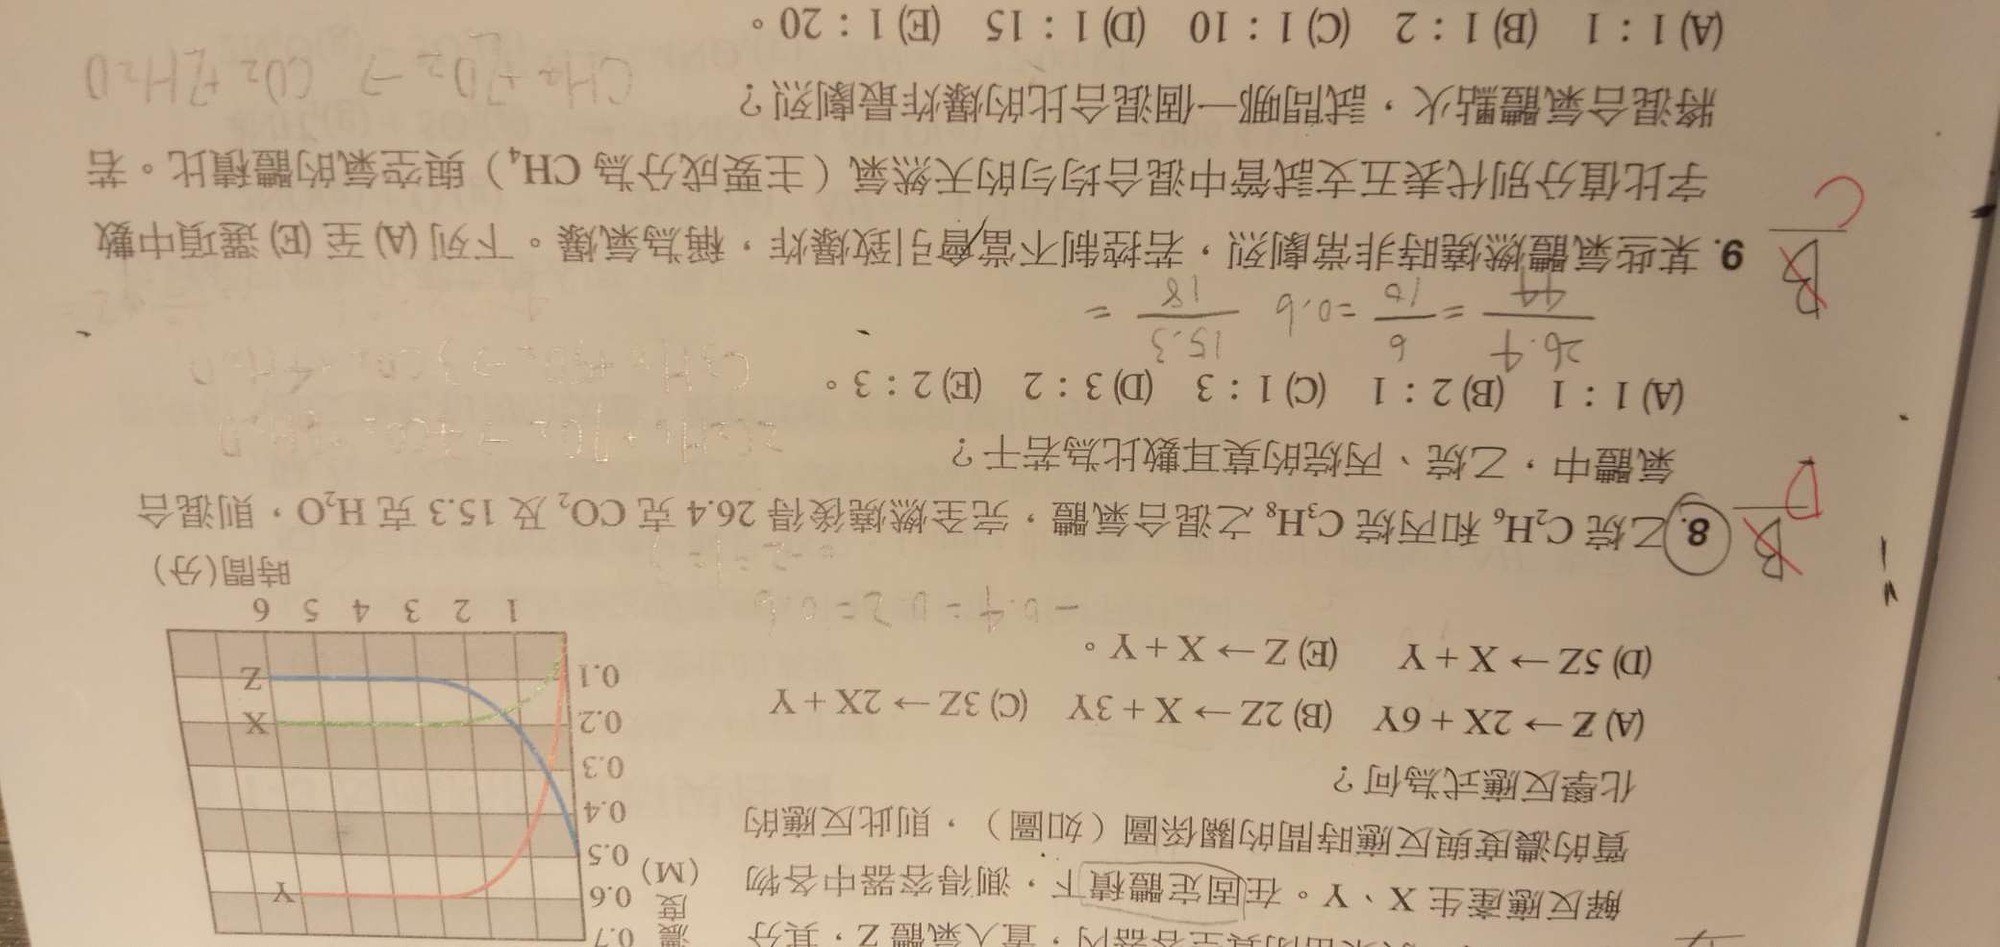 解反應產生 X、Y。在固定體積下,測得容器中各物
質的濃度與反應時間的關係圖(如圖),則此反應的
化學反應式為何?
(A) Z → 2X + 6Y (B) 2Z → X + 3Y (C) 3Z → 2X + Y
(D) 5Z → X + Y (E) Z → X + Y。
濃度
(M)
0.7
0.6
0.5
0.4
0.3
0.2
0.1
Y
X
Z
1 2 3 4 5 6
時間(分)
B
D
8. 乙烷 C₂H₆ 和丙烷 C₃H₈ 之混合氣體,完全燃燒後得 26.4 克 CO₂ 及 15.3 克 H₂O,則混合
氣體中,乙烷、丙烷的莫耳數比為若干?
(A) 1:1 (B) 2:1 (C) 1:3 (D) 3:2 (E) 2:3。
26.4/44 = 6/10 = 0.6 15.3/18 =
B
C
9. 某些氣體燃燒時非常劇烈,若控制不當會引致爆炸,稱為氣爆。下列 (A) 至 (E) 選項中數
字比值分別代表五支試管中混合均勻的天然氣(主要成分為 CH₄)與空氣的體積比。若
將混合氣體點火,試問哪一個混合比的爆炸最劇烈?
CH₄ + 2O₂ → CO₂ + 2H₂O
(A) 1:1 (B) 1:2 (C) 1:10 (D) 1:15 (E) 1:20。